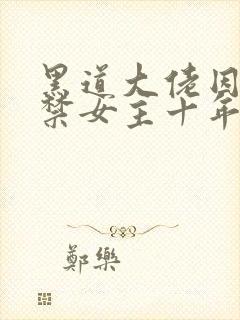 黑道大佬囚
禁女主十年
鄭樂